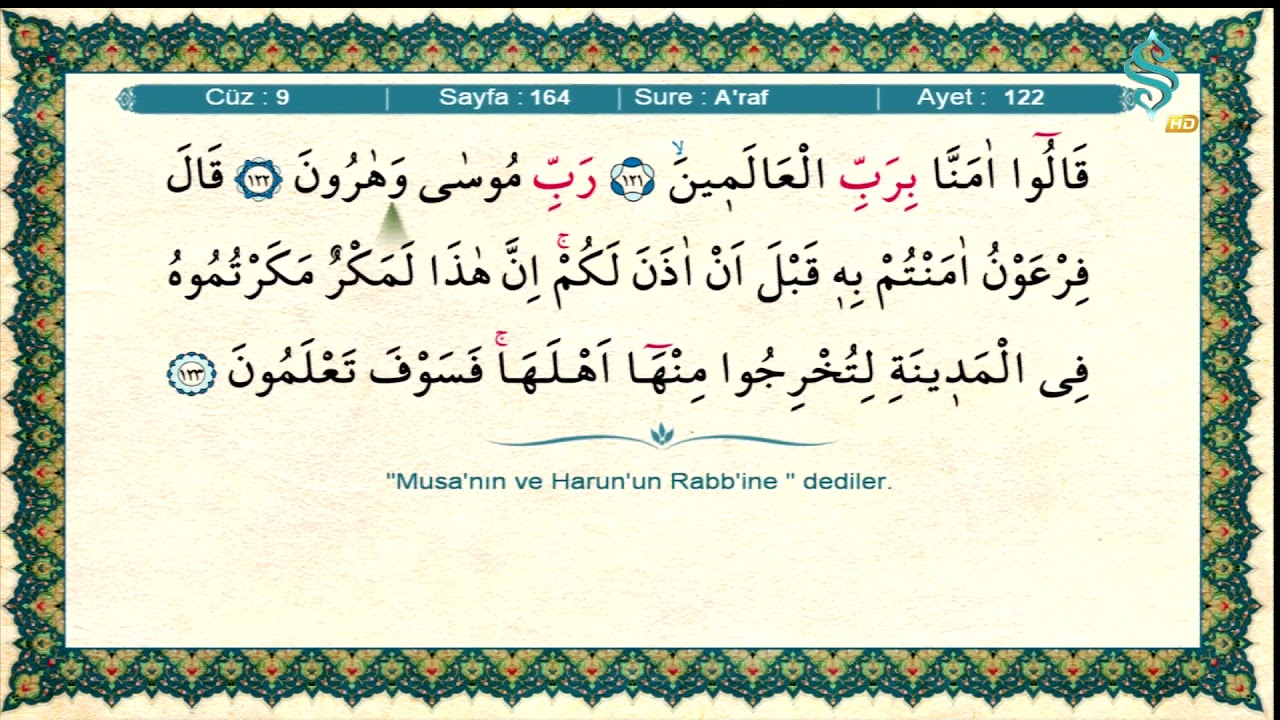 Cüz : 9 | Sayfa : 164 | Sure : A'raf | Ayet : 122
HD
قَالُٓوا اٰمَنَّا بِرَبِّ الْعَالَم۪ينَۙ ﴿١٢١﴾ رَبِّ مُوسٰى وَهٰرُونَ ﴿١٢٢﴾ قَالَ
فِرْعَوْنُ اٰمَنْتُمْ بِه۪ قَبْلَ اَنْ اٰذَنَ لَكُمْۚ اِنَّ هٰذَا لَمَكْرٌ مَكَرْتُمُوهُ
فِى الْمَد۪ينَةِ لِتُخْرِجُوا مِنْهَٓا اَهْلَهَاۚ فَسَوْفَ تَعْلَمُونَ ﴿١٢٣﴾
"Musa'nın ve Harun'un Rabb'ine " dediler.